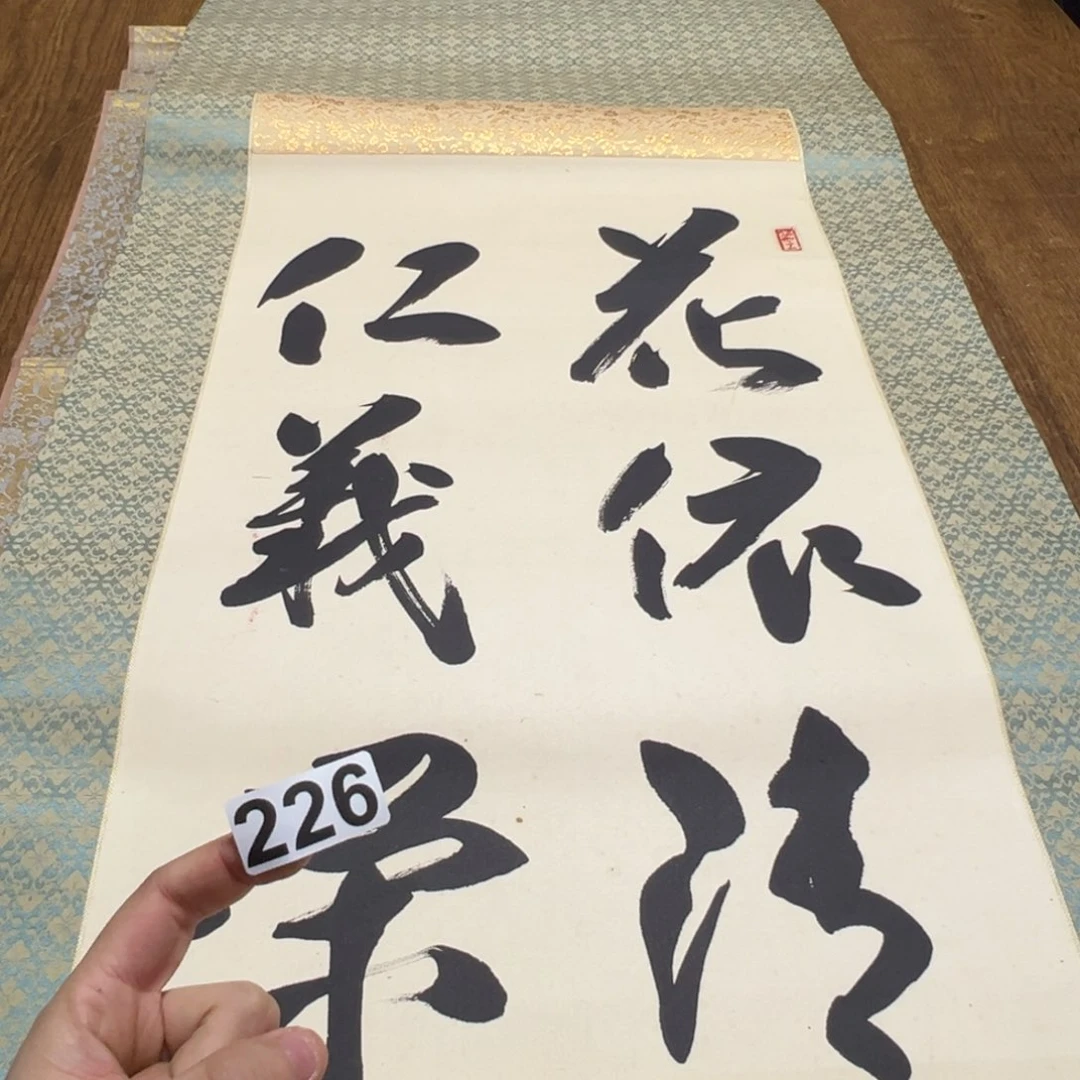 花依清
仁義栄
226